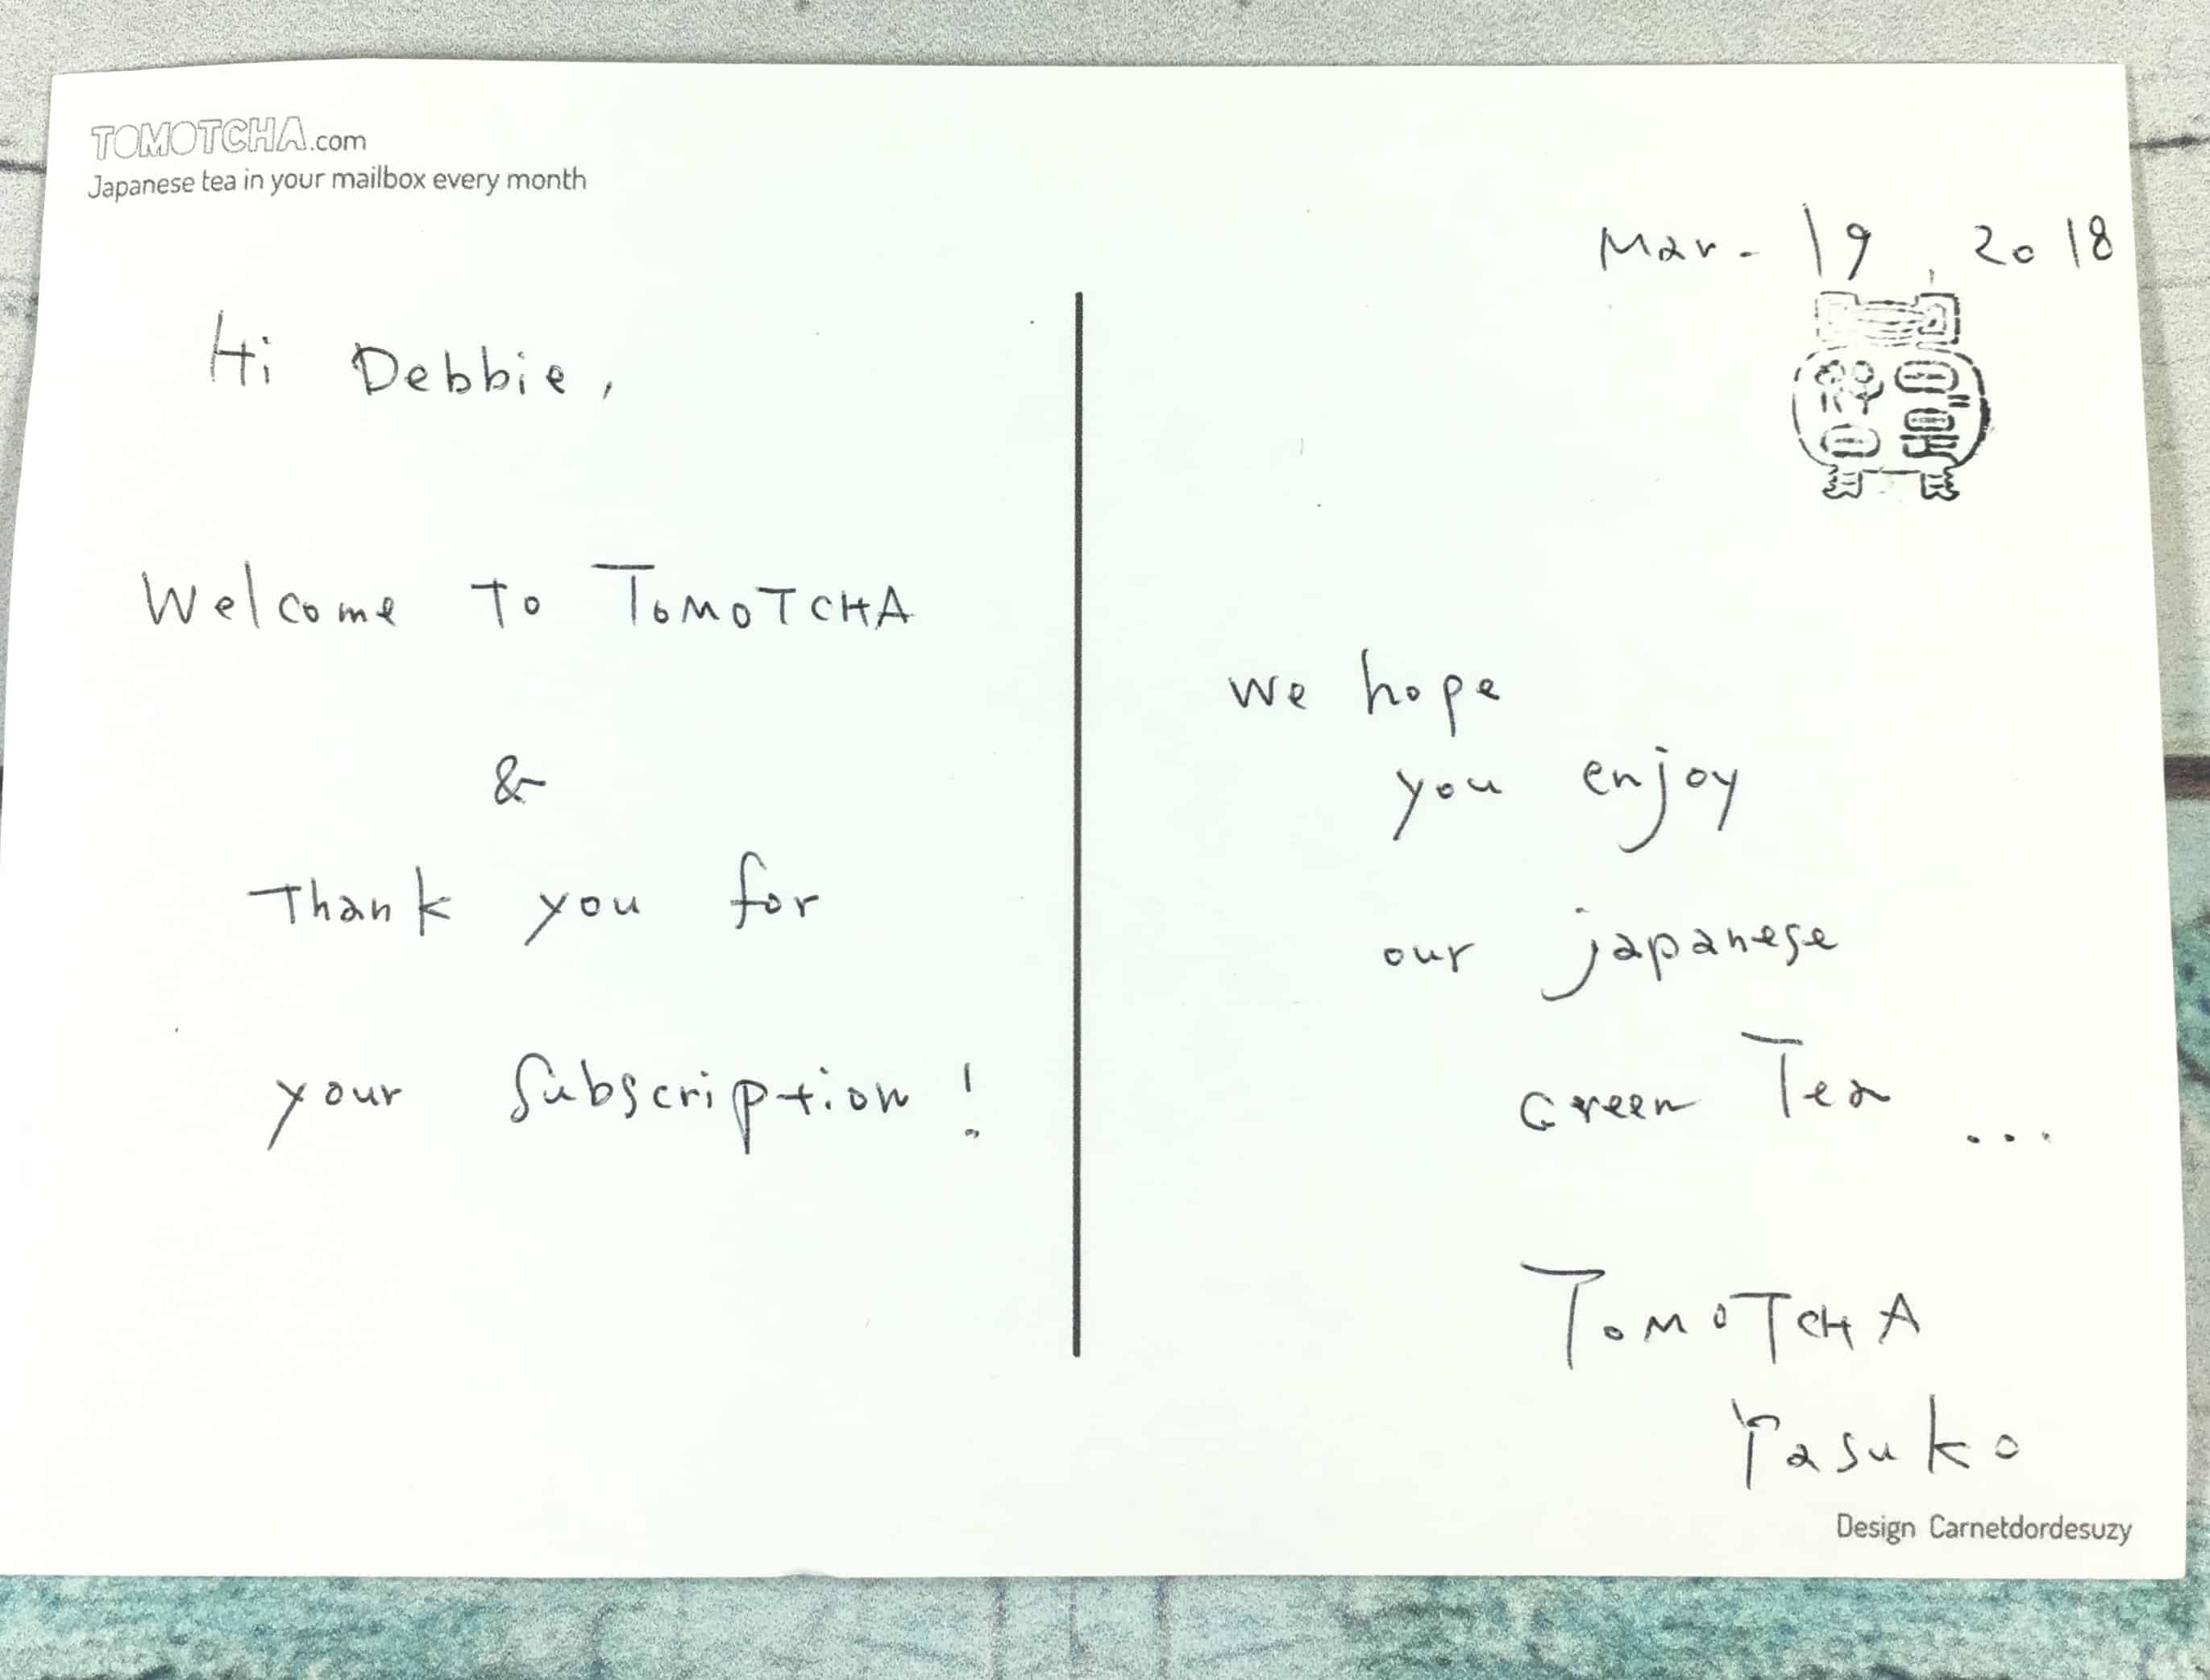 TOMOTCHA.com
Japanese tea in your mailbox every month
Mar. 19, 2018
Hi Debbie,
Welcome To TOMOTCHA
&
Thank you for
your Subscription!
we hope
you enjoy
our japanese
Green Tea ...
TOMOTCHA
Yasuko
Design Carnetdordesuzy